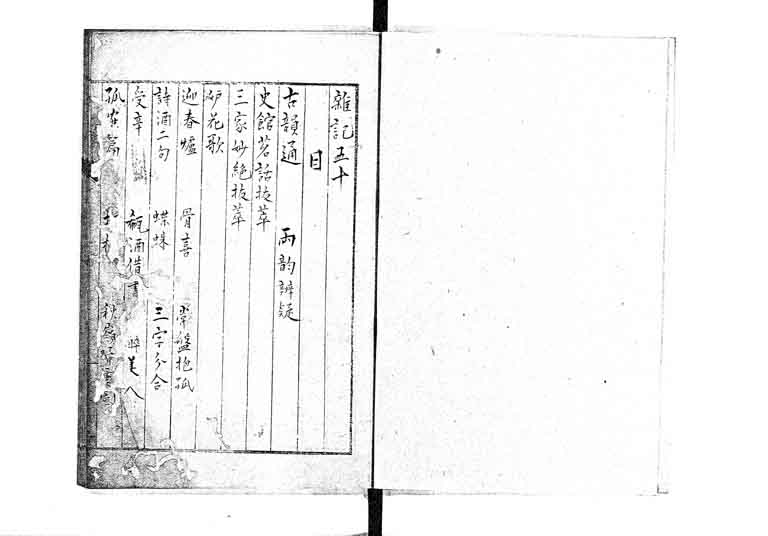 雜記五十
目
古韻通 兩韵辨疑
史館茗話抜萃
三家妙絶抜萃
炉花歌
迎春爐 骨喜 常盤抱孤
詩酒二句 蝶蛛 三字分合
受辛 瓻酒借書 醉美人
孤 篇